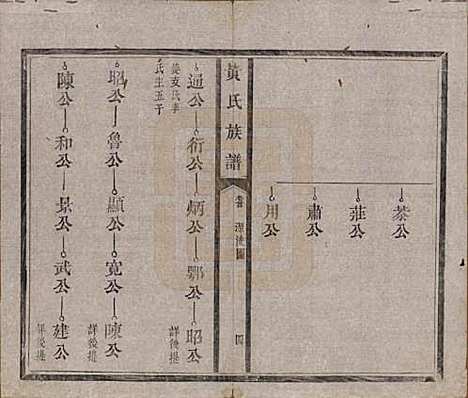 恭公
莊公
肅公
用公
黃氏族譜
通公 衍公 炳公 鄂公 昭公 詳後提
姜支氏李
氏生五子
昭公 魯公 顯公 寬公 陳公 詳後提
陳公 和公 景公 武公 建公 畢後提